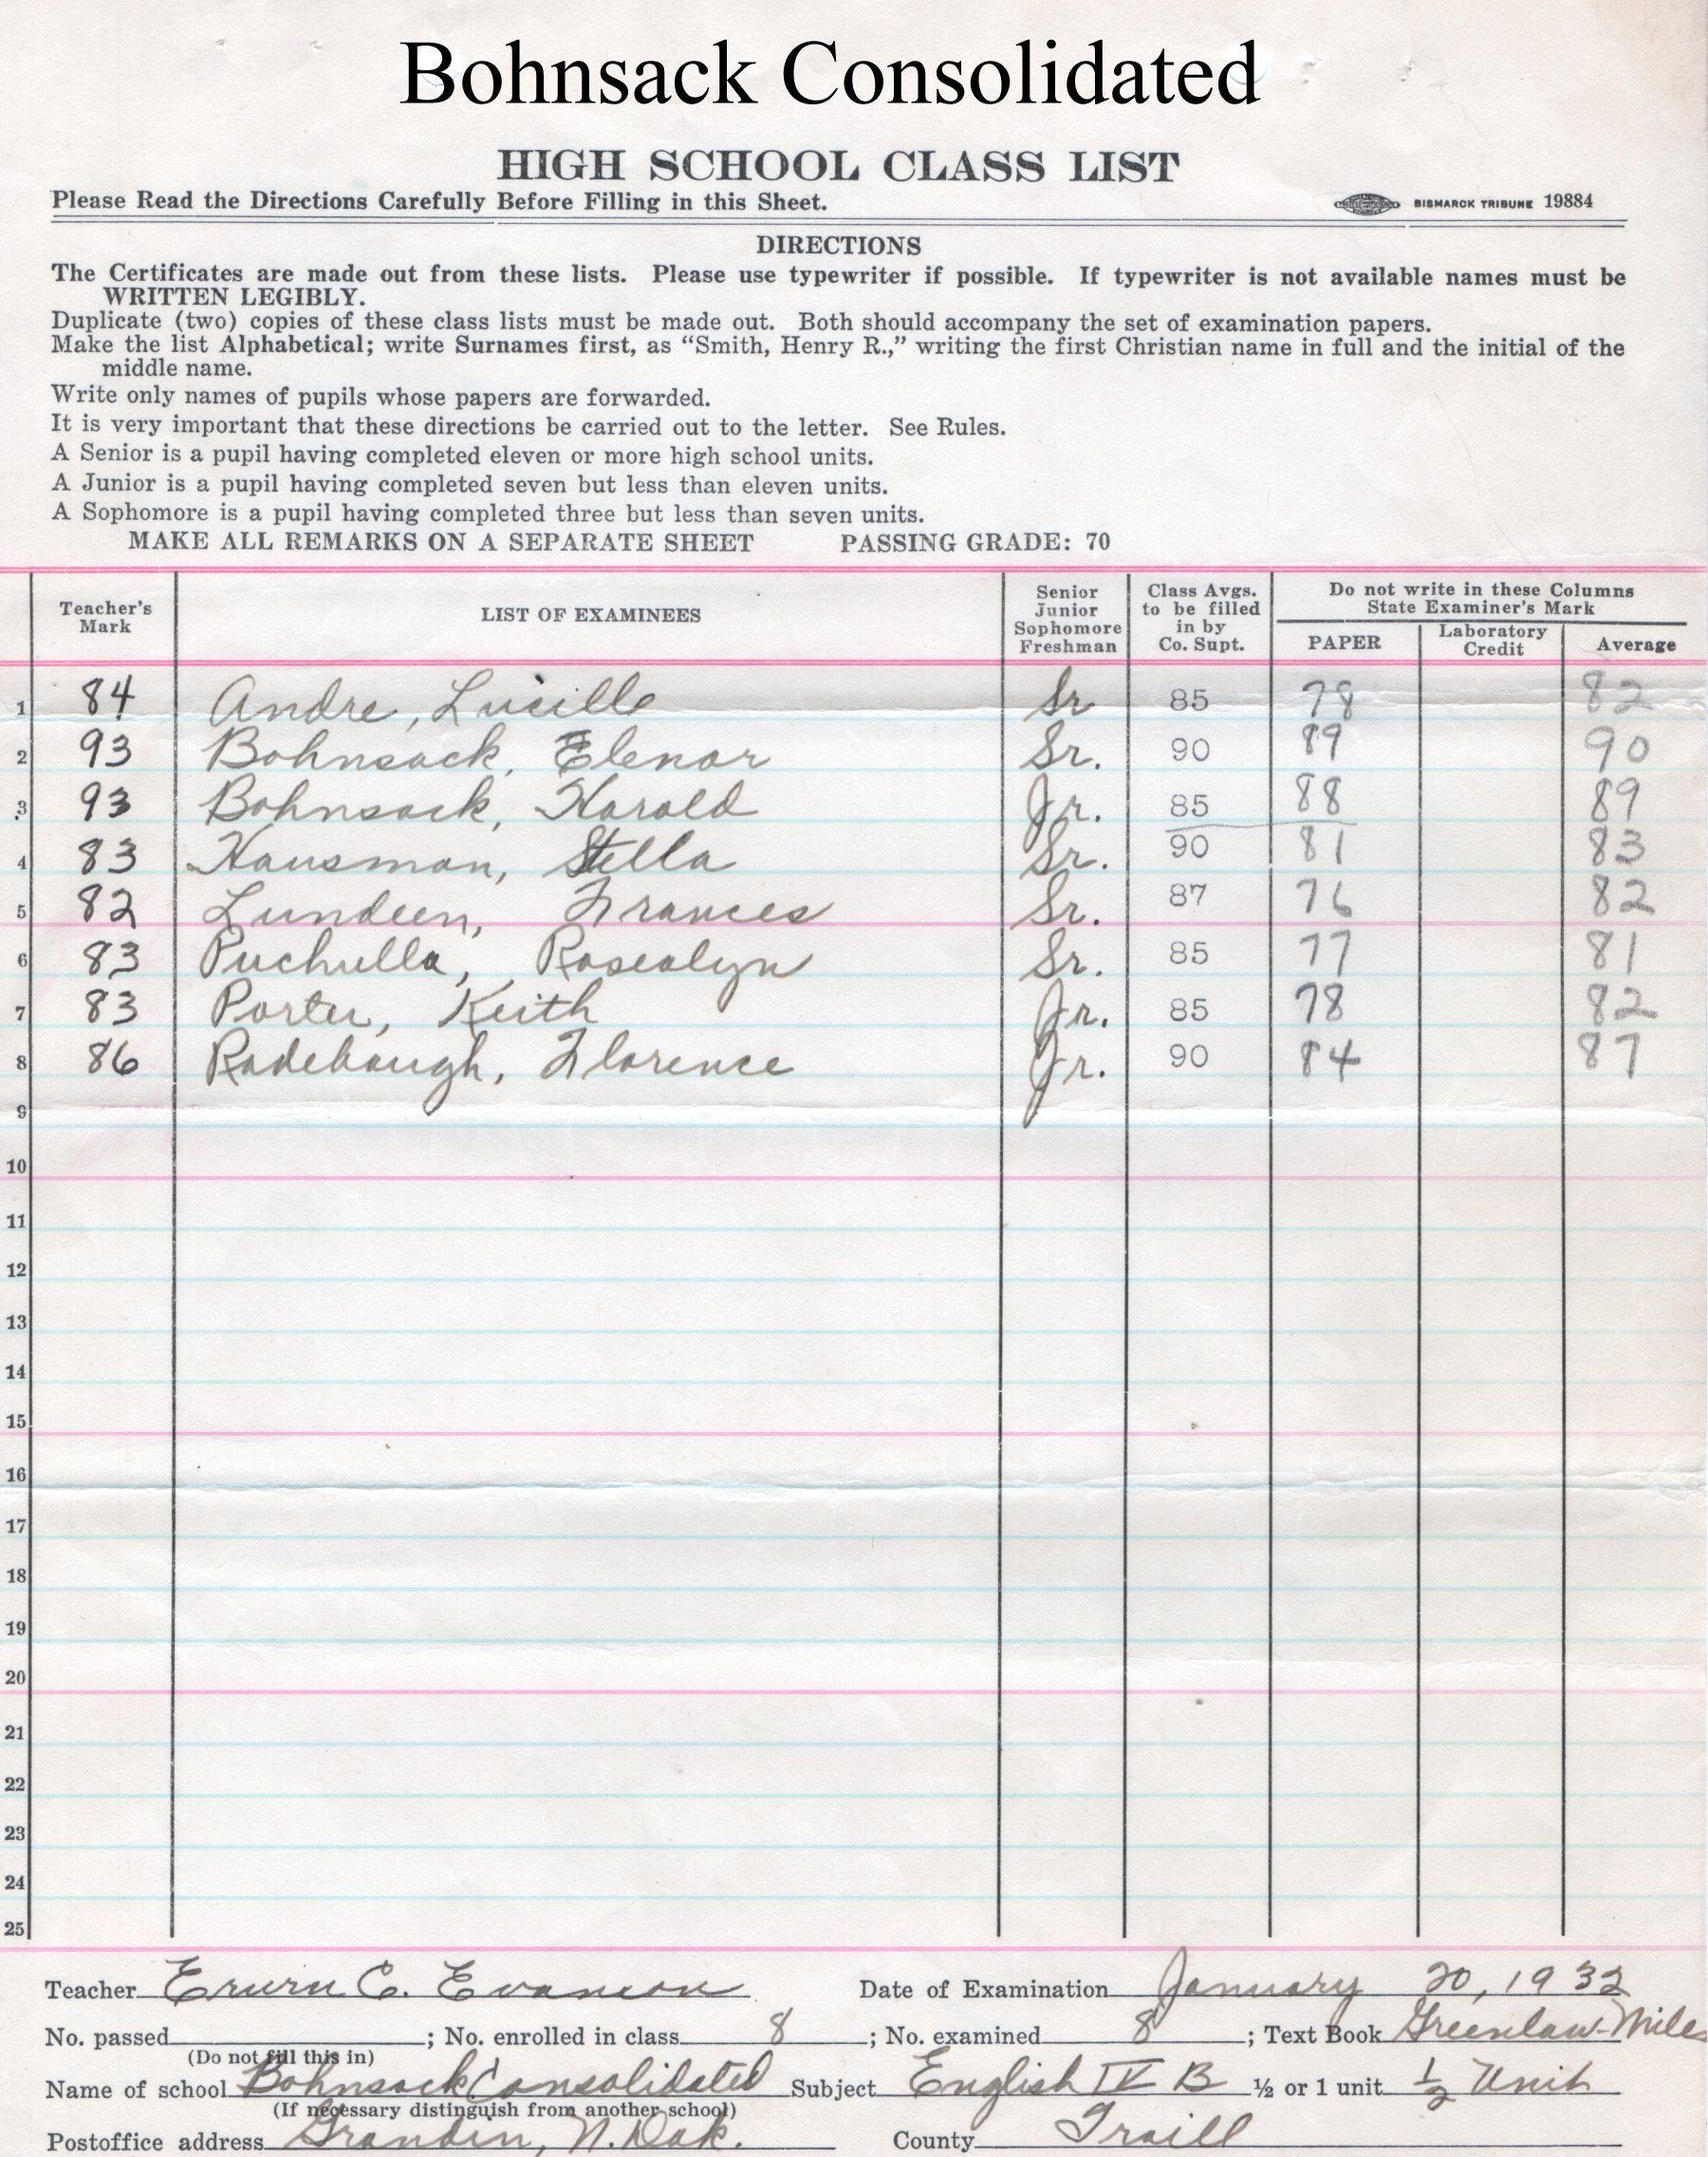 Bohnsack Consolidated
HIGH SCHOOL CLASS LIST
Please Read the Directions Carefully Before Filling in this Sheet. BISMARCK TRIBUNE 19884
DIRECTIONS
The Certificates are made out from these lists. Please use typewriter if possible. If typewriter is not available names must be
WRITTEN LEGIBLY.
Duplicate (two) copies of these class lists must be made out. Both should accompany the set of examination papers.
Make the list Alphabetical; write Surnames first, as “Smith, Henry R.,” writing the first Christian name in full and the initial of the
middle name.
Write only names of pupils whose papers are forwarded.
It is very important that these directions be carried out to the letter. See Rules.
A Senior is a pupil having completed eleven or more high school units.
A Junior is a pupil having completed seven but less than eleven units.
A Sophomore is a pupil having completed three but less than seven units.
MAKE ALL REMARKS ON A SEPARATE SHEET PASSING GRADE: 70
Teacher's Mark LIST OF EXAMINEES Senior Junior Sophomore Freshman Class Avgs. to be filled in by Co. Supt. Do not write in these Columns State Examiner's Mark PAPER Laboratory Credit Average
1 84 Andre, Lucille Sr 85 78 82
2 93 Bohnsack, Elenor Sr. 90 89 90
3 93 Bohnsack, Harold Jr. 85 88 89
4 83 Hausman, Stella Sr. 90 81 83
5 82 Lundeen, Frances Sr. 87 76 82
6 83 Puchulla, Rosealyn Sr. 85 77 81
7 83 Porter, Keith Jr. 85 78 82
8 86 Radebaugh, Florence Jr. 90 84 87
9
10
11
12
13
14
15
16
17
18
19
20
21
22
23
24
25
Teacher Erwin C. Evanson Date of Examination January 20, 1932
No. passed ; No. enrolled in class 8 ; No. examined 8 ; Text Book Greenlaw-Miles
(Do not fill this in)
Name of school Bohnsack Consolidated Subject English IV B ½ or 1 unit ½ Unit
(If necessary distinguish from another school)
Postoffice address Grandin, N. Dak. County Traill